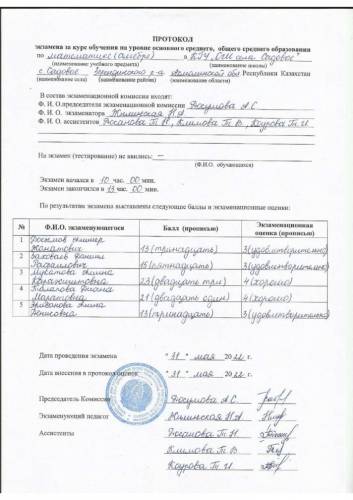 ПРОТОКОЛ
экзамена за курс обучения на уровне основного среднего, общего среднего образования
по математике (алгебре) в КГУ „ОШ села Садовое"
(наименование учебного предмета) (наименование школы)
с. Садовое р-а Акмолинской обл Республики Казахстан
(наименование села) (наименование района) (наименование области)
В состав экзаменационной комиссии входят:
Ф. И. О.председателя экзаменационной комиссии Досумова А.С
Ф. И. О. экзаменатора Жминская Н.А
Ф. И. О. ассистентов Досанова Т.Н, Климова Т.В, Каурова Т.И
На экзамен (тестирование) не явились: —
(Ф.И.О. обучающихся)
Экзамен начался в 10 час. 00 мин.
Экзамен закончился в 13 час. 00 мин.
По результатам экзамена выставлены следующие баллы и экзаменационные оценки:
№ Ф.И.О. экзаменующегося Балл (прописью) Экзаменационная оценка (прописью)
1 Жанатович 13 (тринадцать) 3 (удовлетворительно)
2 Рафаилович 15 (пятнадцать) 3 (удовлетворительно)
3 Мукатова Амина 23 (двадцать три) 4 (хорошо)
4 Маратовна 21 (двадцать один) 4 (хорошо)
5 Денисовна 13 (тринадцать) 3 (удовлетворительно)
Дата проведения экзамена " 31 " мая 2022 г.
Дата внесения в протокол оценок " 31 " мая 2022 г.
Председатель Комиссии Досумова А.С
Экзаменующий педагог Жминская Н.А
Ассистенты Досанова Т.Н
Климова Т.В
Каурова Т.И